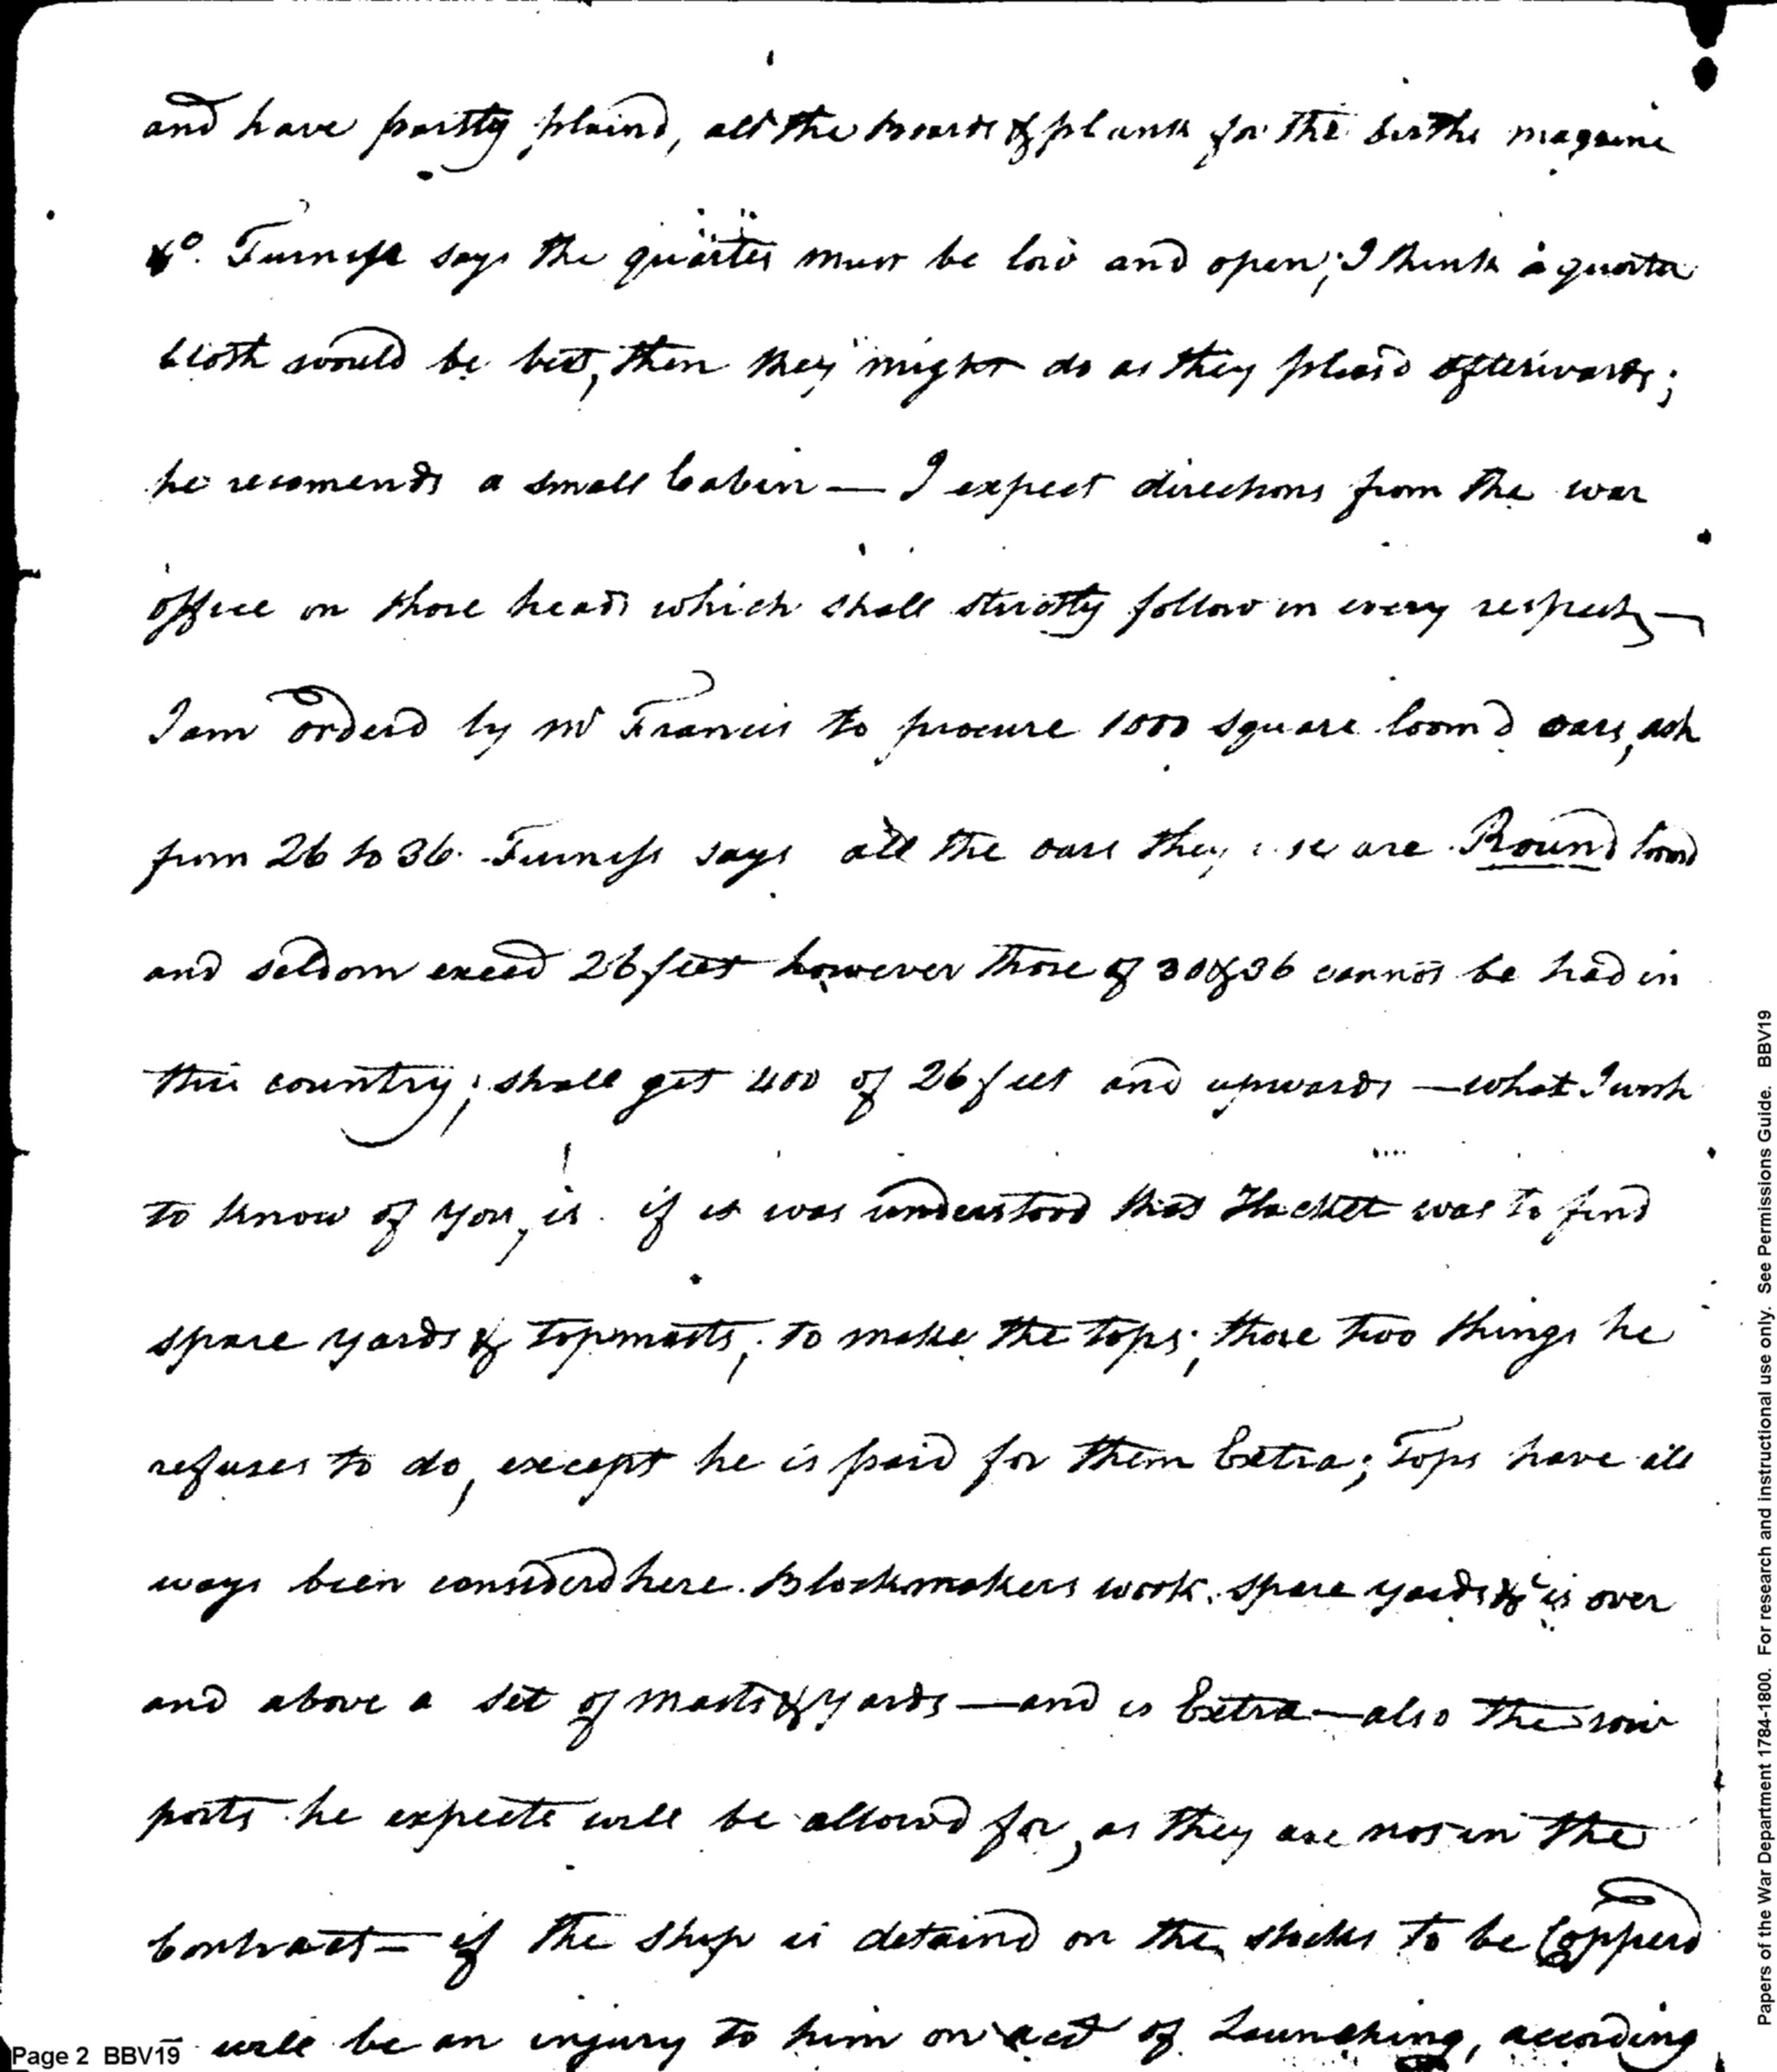 and have partly plaind, all the boards & plank for the births magzine
&c. Furness says the quarter must be low and open; I think a quarter
cloth would be best, then they might do as they pleasd afterwards;
he recomends a small Cabin — I expect directions from the war
office on those heads which shall strictly follow in every respect, —
I am orderd by Mr Francis to procure 1000 square loomd oars, ash
from 26 to 36. Furness says all the oars they use are Round loomd
and seldom exced 26 feet however those of 30 & 36 cannot be had in
this country; shall get 400 of 26 feet and upwards — what I wish
to know of you, is if it was understood that Hackett was to find
spare yards & topmasts, to make the tops, those two things he
refuses to do, except he is paid for them Extra; Tops have all
ways been considerd here Blockmakers work. spare yards &c is over
and above a set of masts & yards — and is Extra — also the row
ports he expects will be allowd for, as they are not in the
Contract — if the ship is detaind on the stocks to be Copperd
will be an injury to him on acct of Launching, according
Page 2 BBV19
Papers of the War Department 1784-1800. For research and instructional use only. See Permissions Guide. BBV19